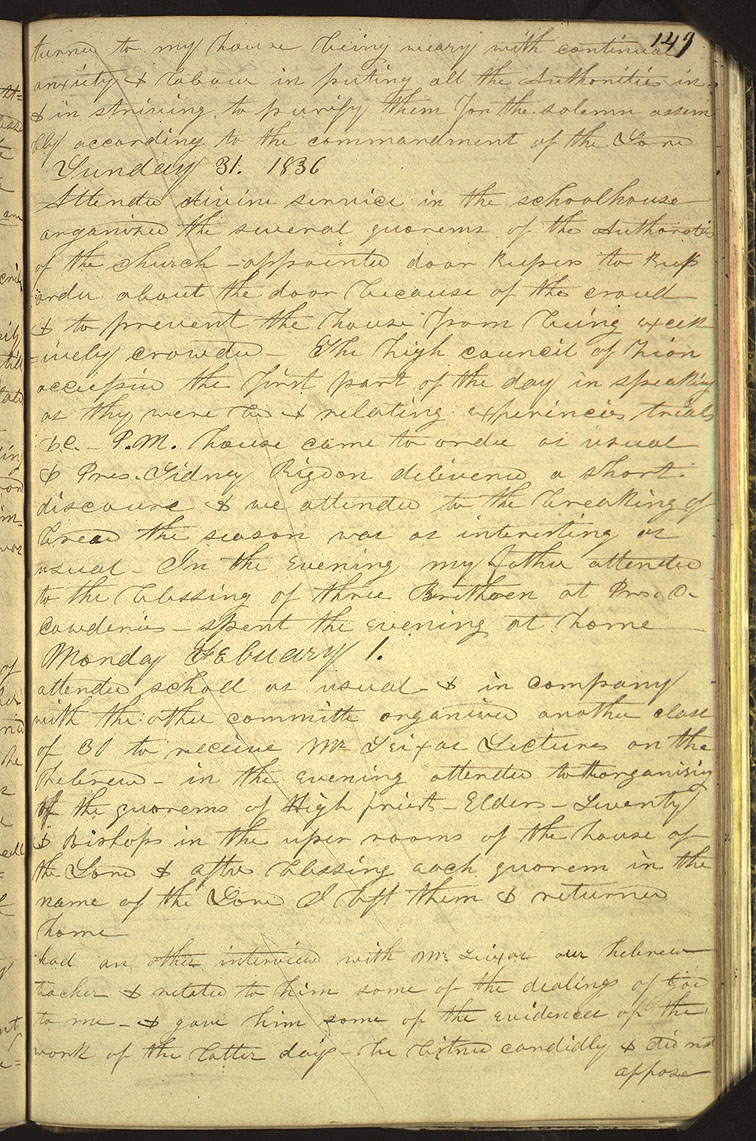 149
turned to my house being weary with continual
anxiety & labour in puting all the Authorities in
& in striving to purify them for the solemn assem
bly according to the commandment of the Lord
Sunday 31. 1836
Attended divine service in the schoolhouse
organized the several quorems of the Authoroties
of the church – appointed door keepers to keep
order about the door because of the croud
& to prevent the house from being excess
ively crowded – The high council of Zion
occupied the first part of the day in speaking
as they were led & relating experiencies trials
&c. – P.M. house came to order as usual
& Pres. Sidney Rigdon delivered a short
discourse & we attended to the breaking of
bread the season was as interesting as
usual – In the evening my father attended
to the blessing of three Brethren at Pres. O.
Cowderies – spent the evening at home
Monday Febuary 1.
attended school as usual – & in company
with the other committe organized another class
of 30 to receive Mr Seixas Lectures on the
hebrew – in the evening attended to the organizing
of the quorems of High priest – Elders – Seventy
& Bishops in the uper rooms of the house of
the Lord & after blessing each quorem in the
name of the Lord I left them & returned
home
had an other interview with Mr Seixas our hebrew
teacher & related to him some of the dealings of God
to me – & gave him some of the evidences of the
work of the latter days – he listned candidly & did not
appose